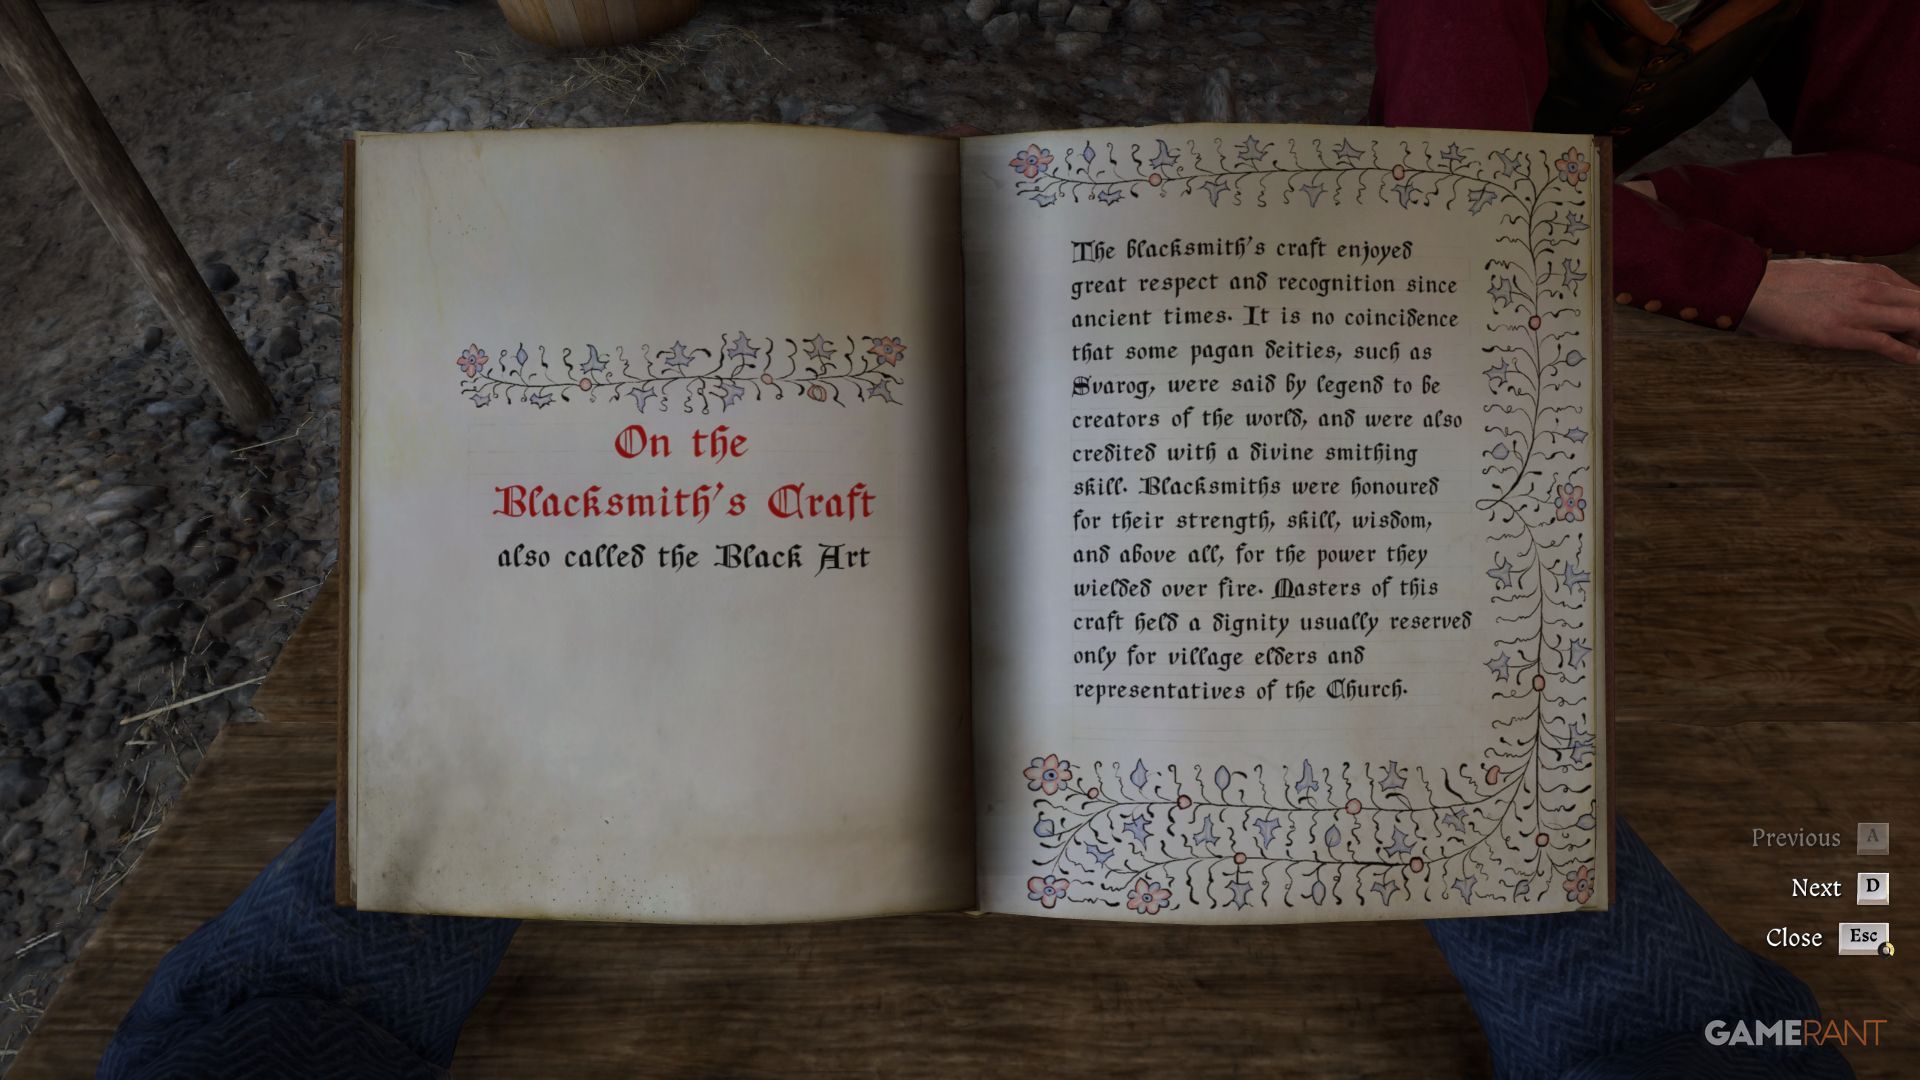 On the
Blacksmith's Craft
also called the Black Art
The blacksmith's craft enjoyed
great respect and recognition since
ancient times. It is no coincidence
that some pagan deities, such as
Svarog, were said by legend to be
creators of the world, and were also
credited with a divine smithing
skill. Blacksmiths were honoured
for their strength, skill, wisdom,
and above all, for the power they
wielded over fire. Masters of this
craft held a dignity usually reserved
only for village elders and
representatives of the Church.
Previous A
Next D
Close Esc
GAMERANT